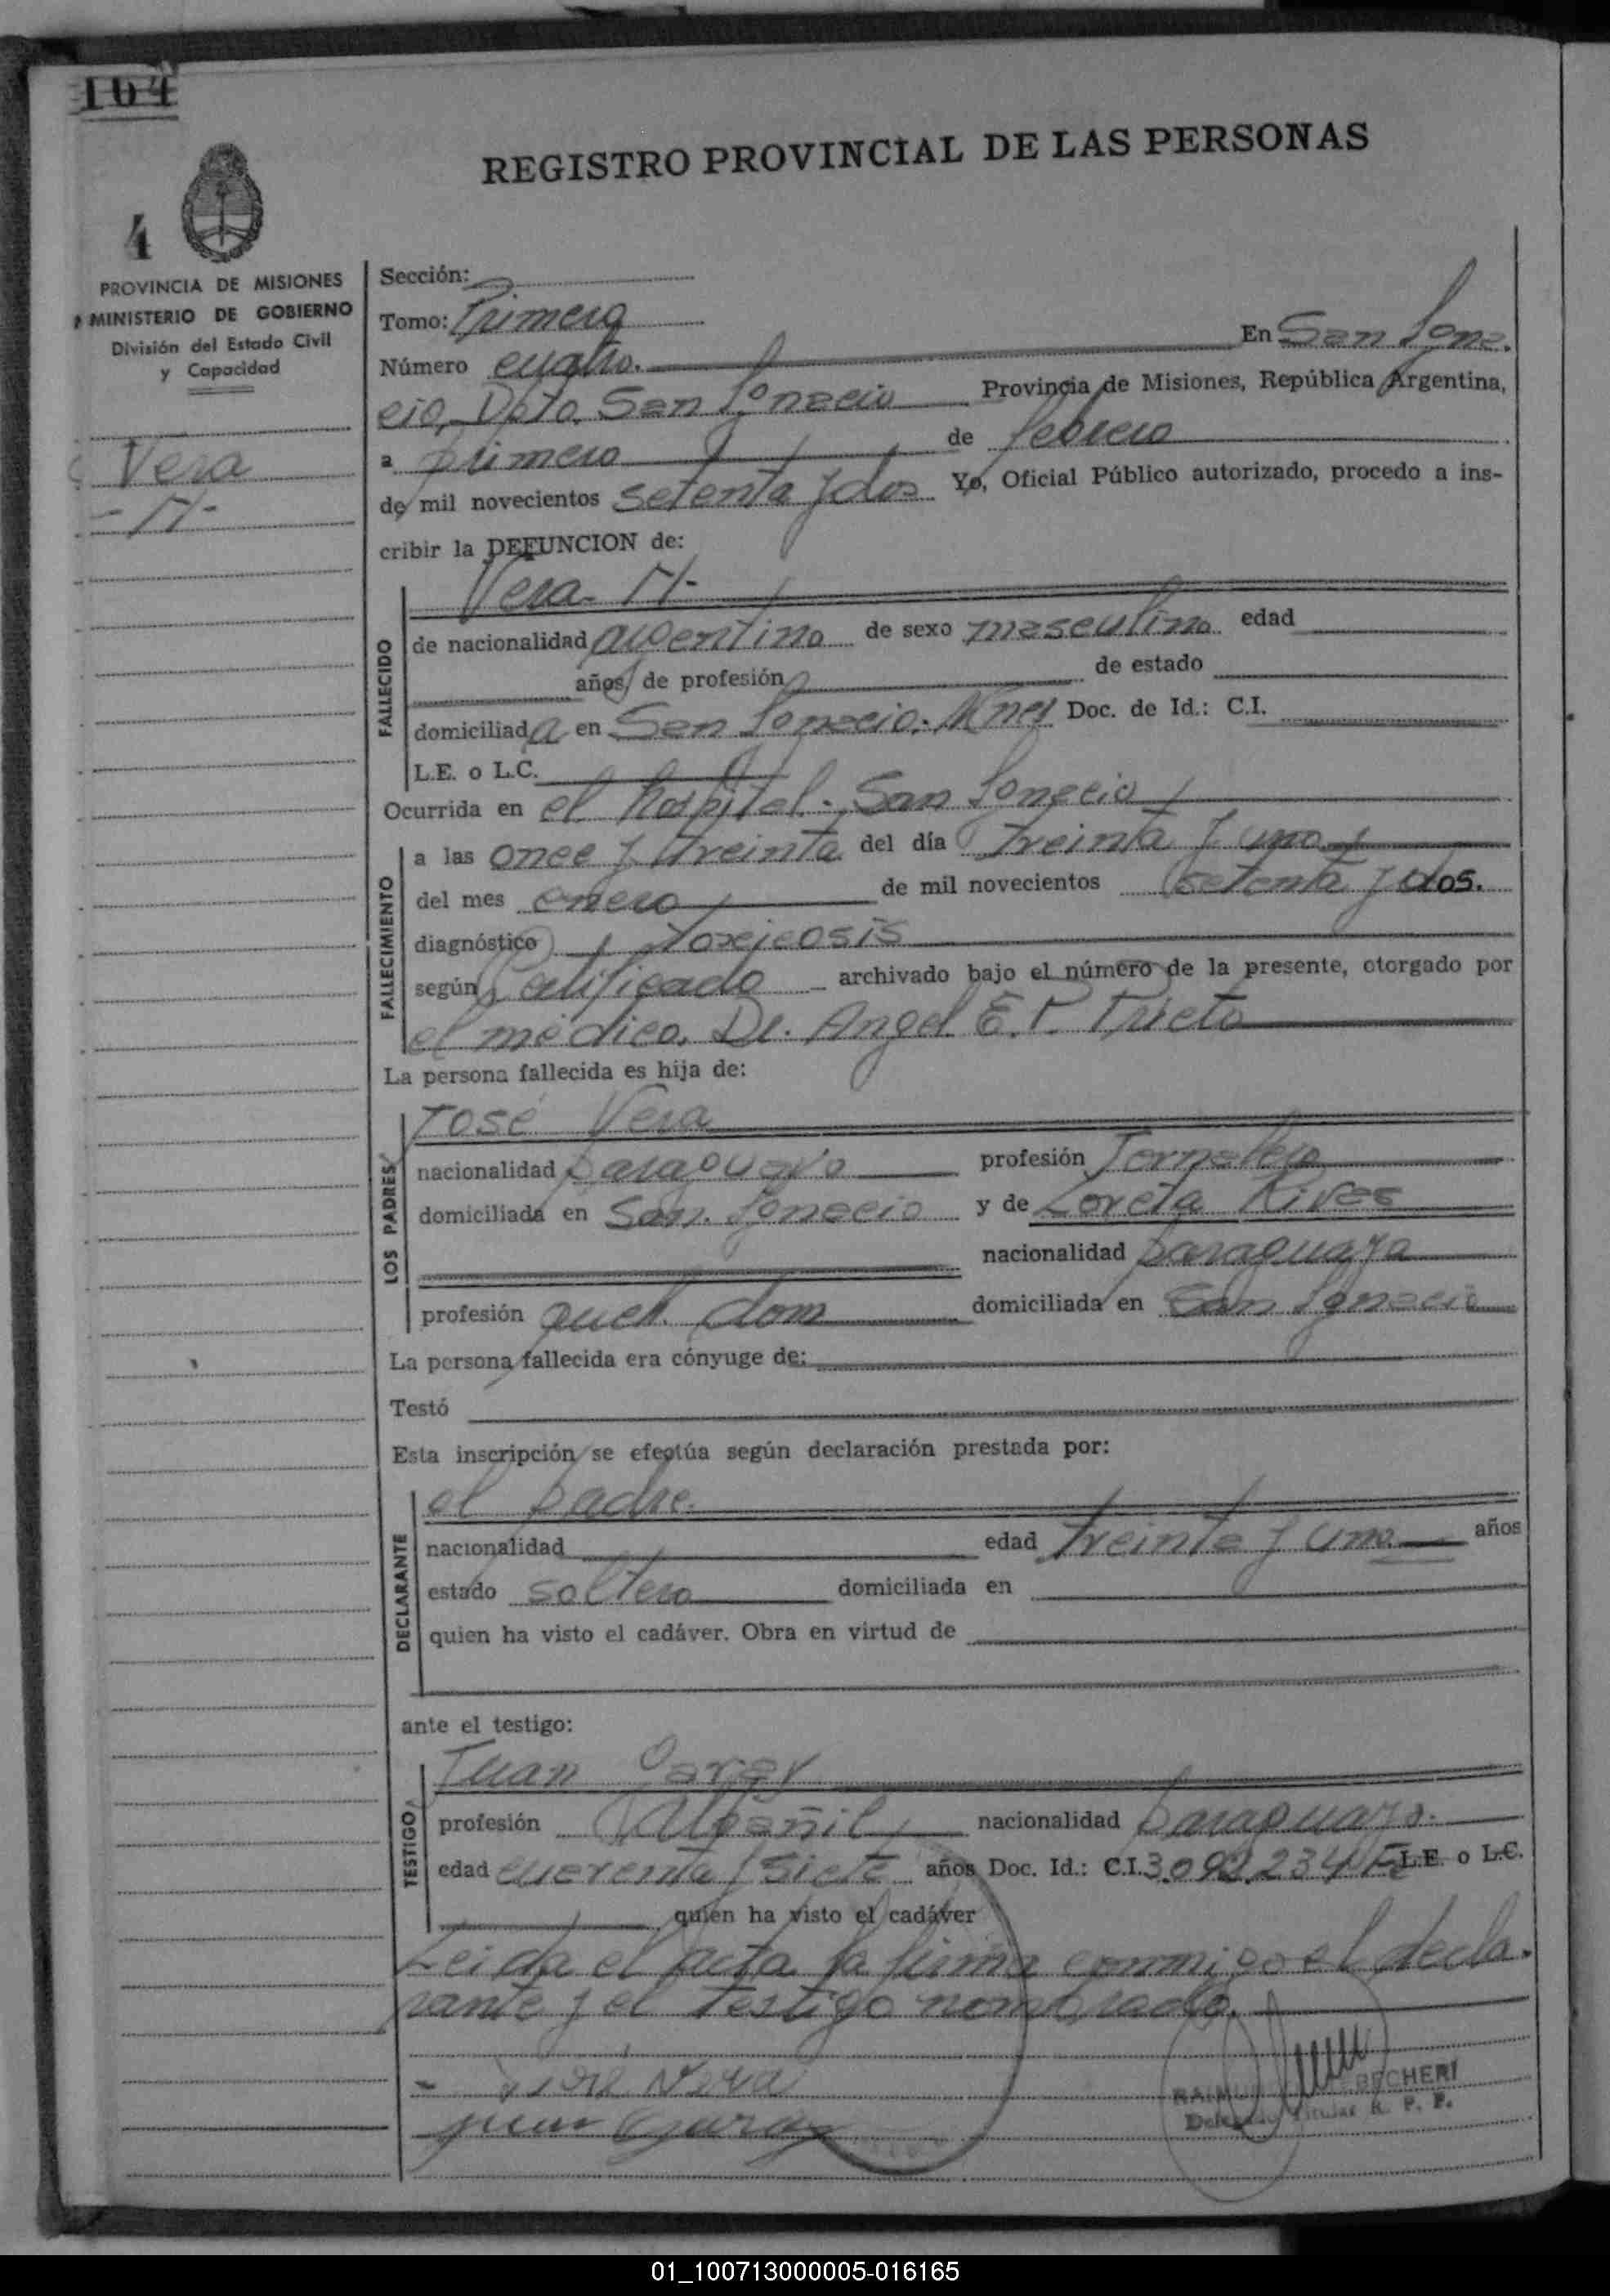 104
REGISTRO PROVINCIAL DE LAS PERSONAS
4
PROVINCIA DE MISIONES
MINISTERIO DE GOBIERNO
División del Estado Civil
y Capacidad
Vera
- N -
Sección:
Tomo: Primera
Número cuatro. En San Igna-
cio, Dpto. San Ignacio Provincia de Misiones, República Argentina,
a primero de febrero
de mil novecientos setenta y dos Yo, Oficial Público autorizado, procedo a ins-
cribir la DEFUNCION de:
Vera - N -
FALLECIDO
de nacionalidad argentino de sexo masculino edad
años, de profesión de estado
domiciliada en San Ignacio. Mnes Doc. de Id.: C.I.
L.E. o L.C.
Ocurrida en el hospital - San Ignacio
FALLECIMIENTO
a las once y treinta del día treinta y uno
del mes enero de mil novecientos setenta y dos.
diagnóstico Toxicosis
según Certificado archivado bajo el número de la presente, otorgado por
el médico. Dr. Angel E. P. Prieto
La persona fallecida es hija de:
LOS PADRES
José Vera
nacionalidad paraguayo profesión Jornalero
domiciliada en San. Ignacio y de Loreta Rivas
nacionalidad paraguaya
profesión queh. dom domiciliada en San Ignacio
La persona fallecida era cónyuge de:
Testó
Esta inscripción se efectúa según declaración prestada por:
DECLARANTE
el padre.
nacionalidad edad treinta y uno años
estado soltero domiciliada en
quien ha visto el cadáver. Obra en virtud de
ante el testigo:
TESTIGO
Juan Garay
profesión Albañil nacionalidad paraguayo.
edad cuarenta y siete años Doc. Id.: C.I. 3.092.234 L.E. o L.C.
quien ha visto el cadáver
Leida el acta la firma conmigo el decla-
rante y el testigo nombrado.
José Vera
Juan Garay
Titular R. P. P.
01_100713000005-016165